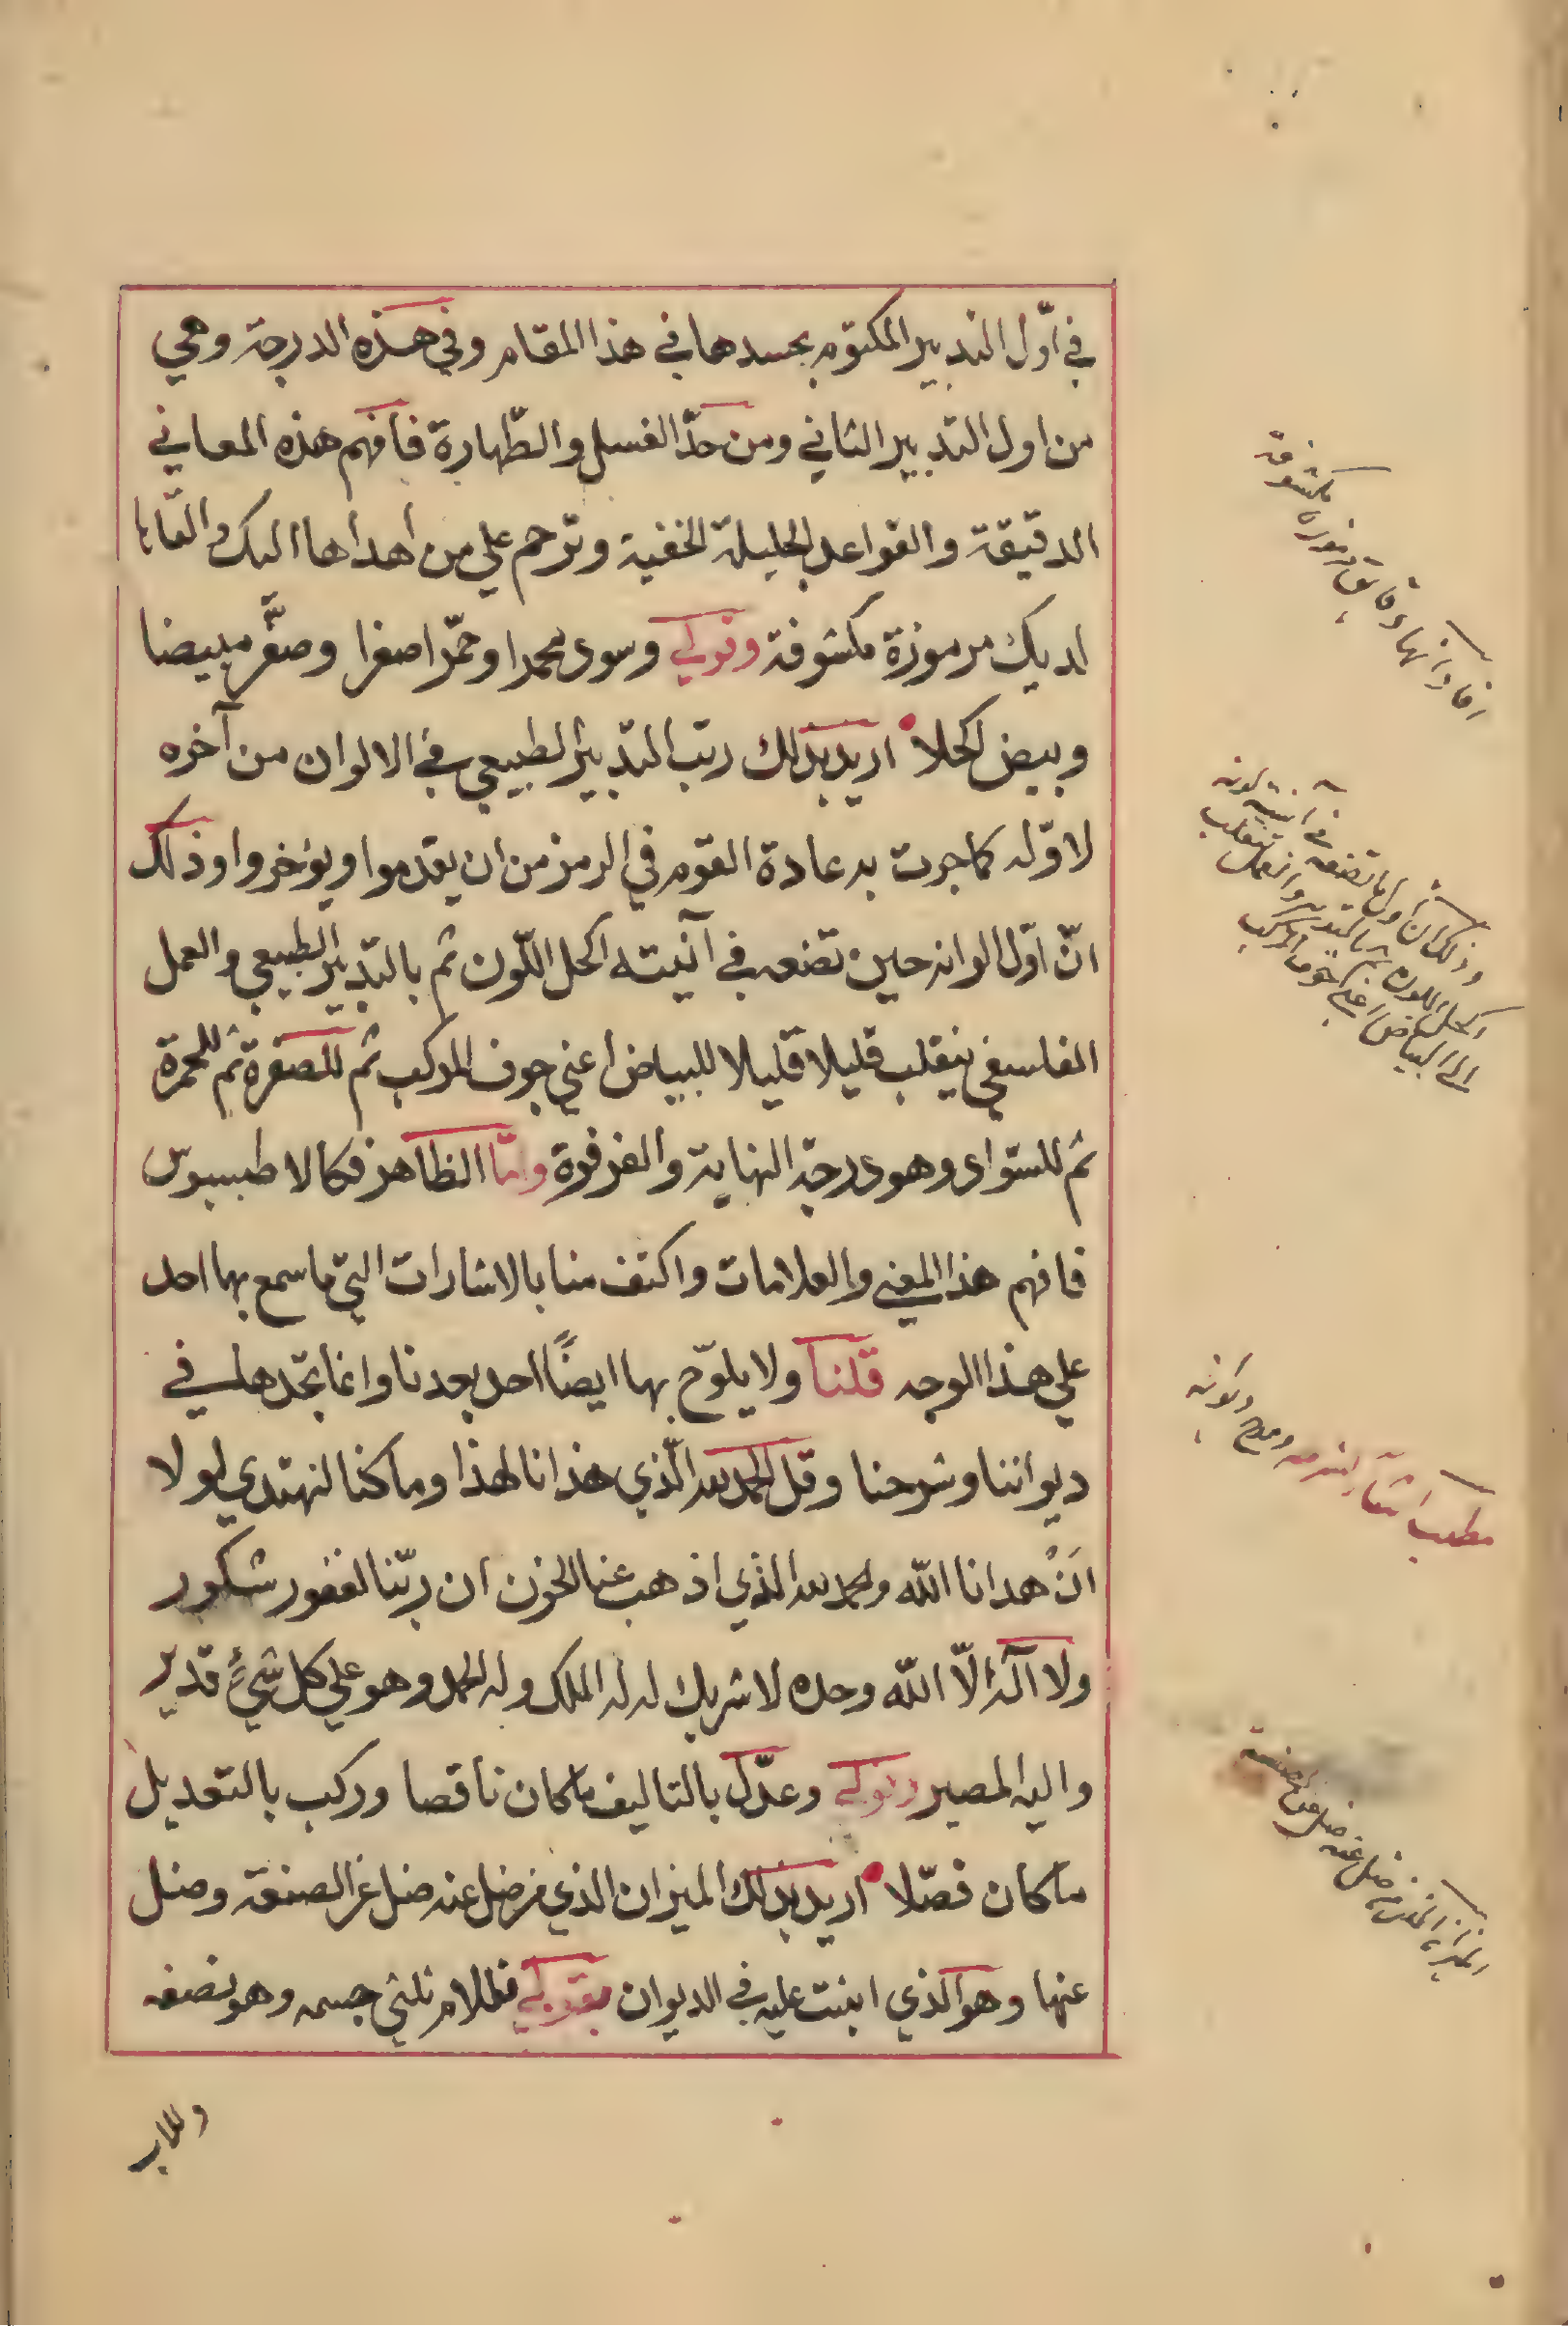 في اوّل التدبير المكتوم بجسدها في هذا المقام وفي هذه الدرجة وهي
من اول التدبير الثاني ومن حدّ الغسل والطّهارة فافهم هذه المعاني
الدقيقة والقواعد الجليلة الخفية وترحم علي من أهداها اليك والقاها
لديك مرموزة مكشوفة وقولي وسود محمرا وحمّر اصفرا وصفّر مبيضا
وبيض اكحلا اريد بذلك رتب التدبير الطبيعي في الالوان من آخره
لاوّله كما جرت به عادة القوم في الرمز من ان يقدموا ويؤخروا وذلك
انّ اوّل الوانه حين تضعه في آنيته اكحل اللّون ثم بالتدبير الطبيعي والعمل
الفلسفي ينقلب قليلا قليلا للبياض اعني جوف المركب ثم للصفرة ثم للحمرة
ثم للسّواد وهو درجة النهاية والفرفرة وامّا الظاهر فكالا طيبوس
فافهم هذا المعني والعلامات واكتف منا بالاشارات التي ما سمع بها احد
علي هذا الوجه قلنا ولا يلوّح بها ايضًا احد بعدنا وانما تجدها في
ديواننا وشرحنا وقل الحمد لله الّذي هذانا لهذا وما كنا لنهتدي لولا
انْ هدانا الله والحمد لله الذي اذهب عنا الحزن ان ربّنا لغفور شكور
ولا آله الّا الله وحده لا شريك له له الملك وله الحمد وهو علي كل شيءٍ قدير
واليه المصير وقولي وعدّل بالتاليف ما كان ناقصا وركب بالتعديل
ما كان فصّلا اريد بذلك الميزان الذي من ضل عنه ضل عن الصنعة وضل
عنها وهو الذي ابنت عليه في الديوان بقولي فللام ثلثي جسمه وهو نصفه
وللاب
افاد انها دقايق مرموزة مكشوفة
وذلك ان اول ما تضعه في آنيته لونه
اكحل اللون ثم بالتدبير والعمل ينقلب
الي البياض اعني جوف المركب
مطلب
الميزان الذي من ضل عنه ضل عن الصنعة